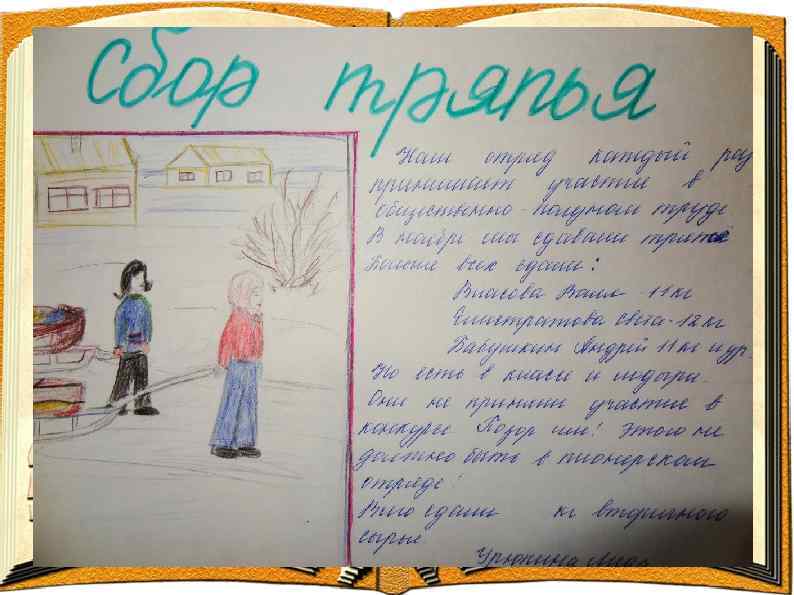 Сбор тряпья
Наш отряд каждый раз
принимает участие в
общественно-полезном труде
В ноябре мы сдавали тряпьё
Больше всех сдали:
Власова Валя - 11 кг
Елистратова Света - 12 кг
Бабушкин Андрей 11 кг и др.
Но есть в классе и лодыри.
Они не приняли участие в
конкурсе Позор им! Этого не
должно быть в пионерском
отряде!
Всего сдали кг вторичного
сырья
Урюпина